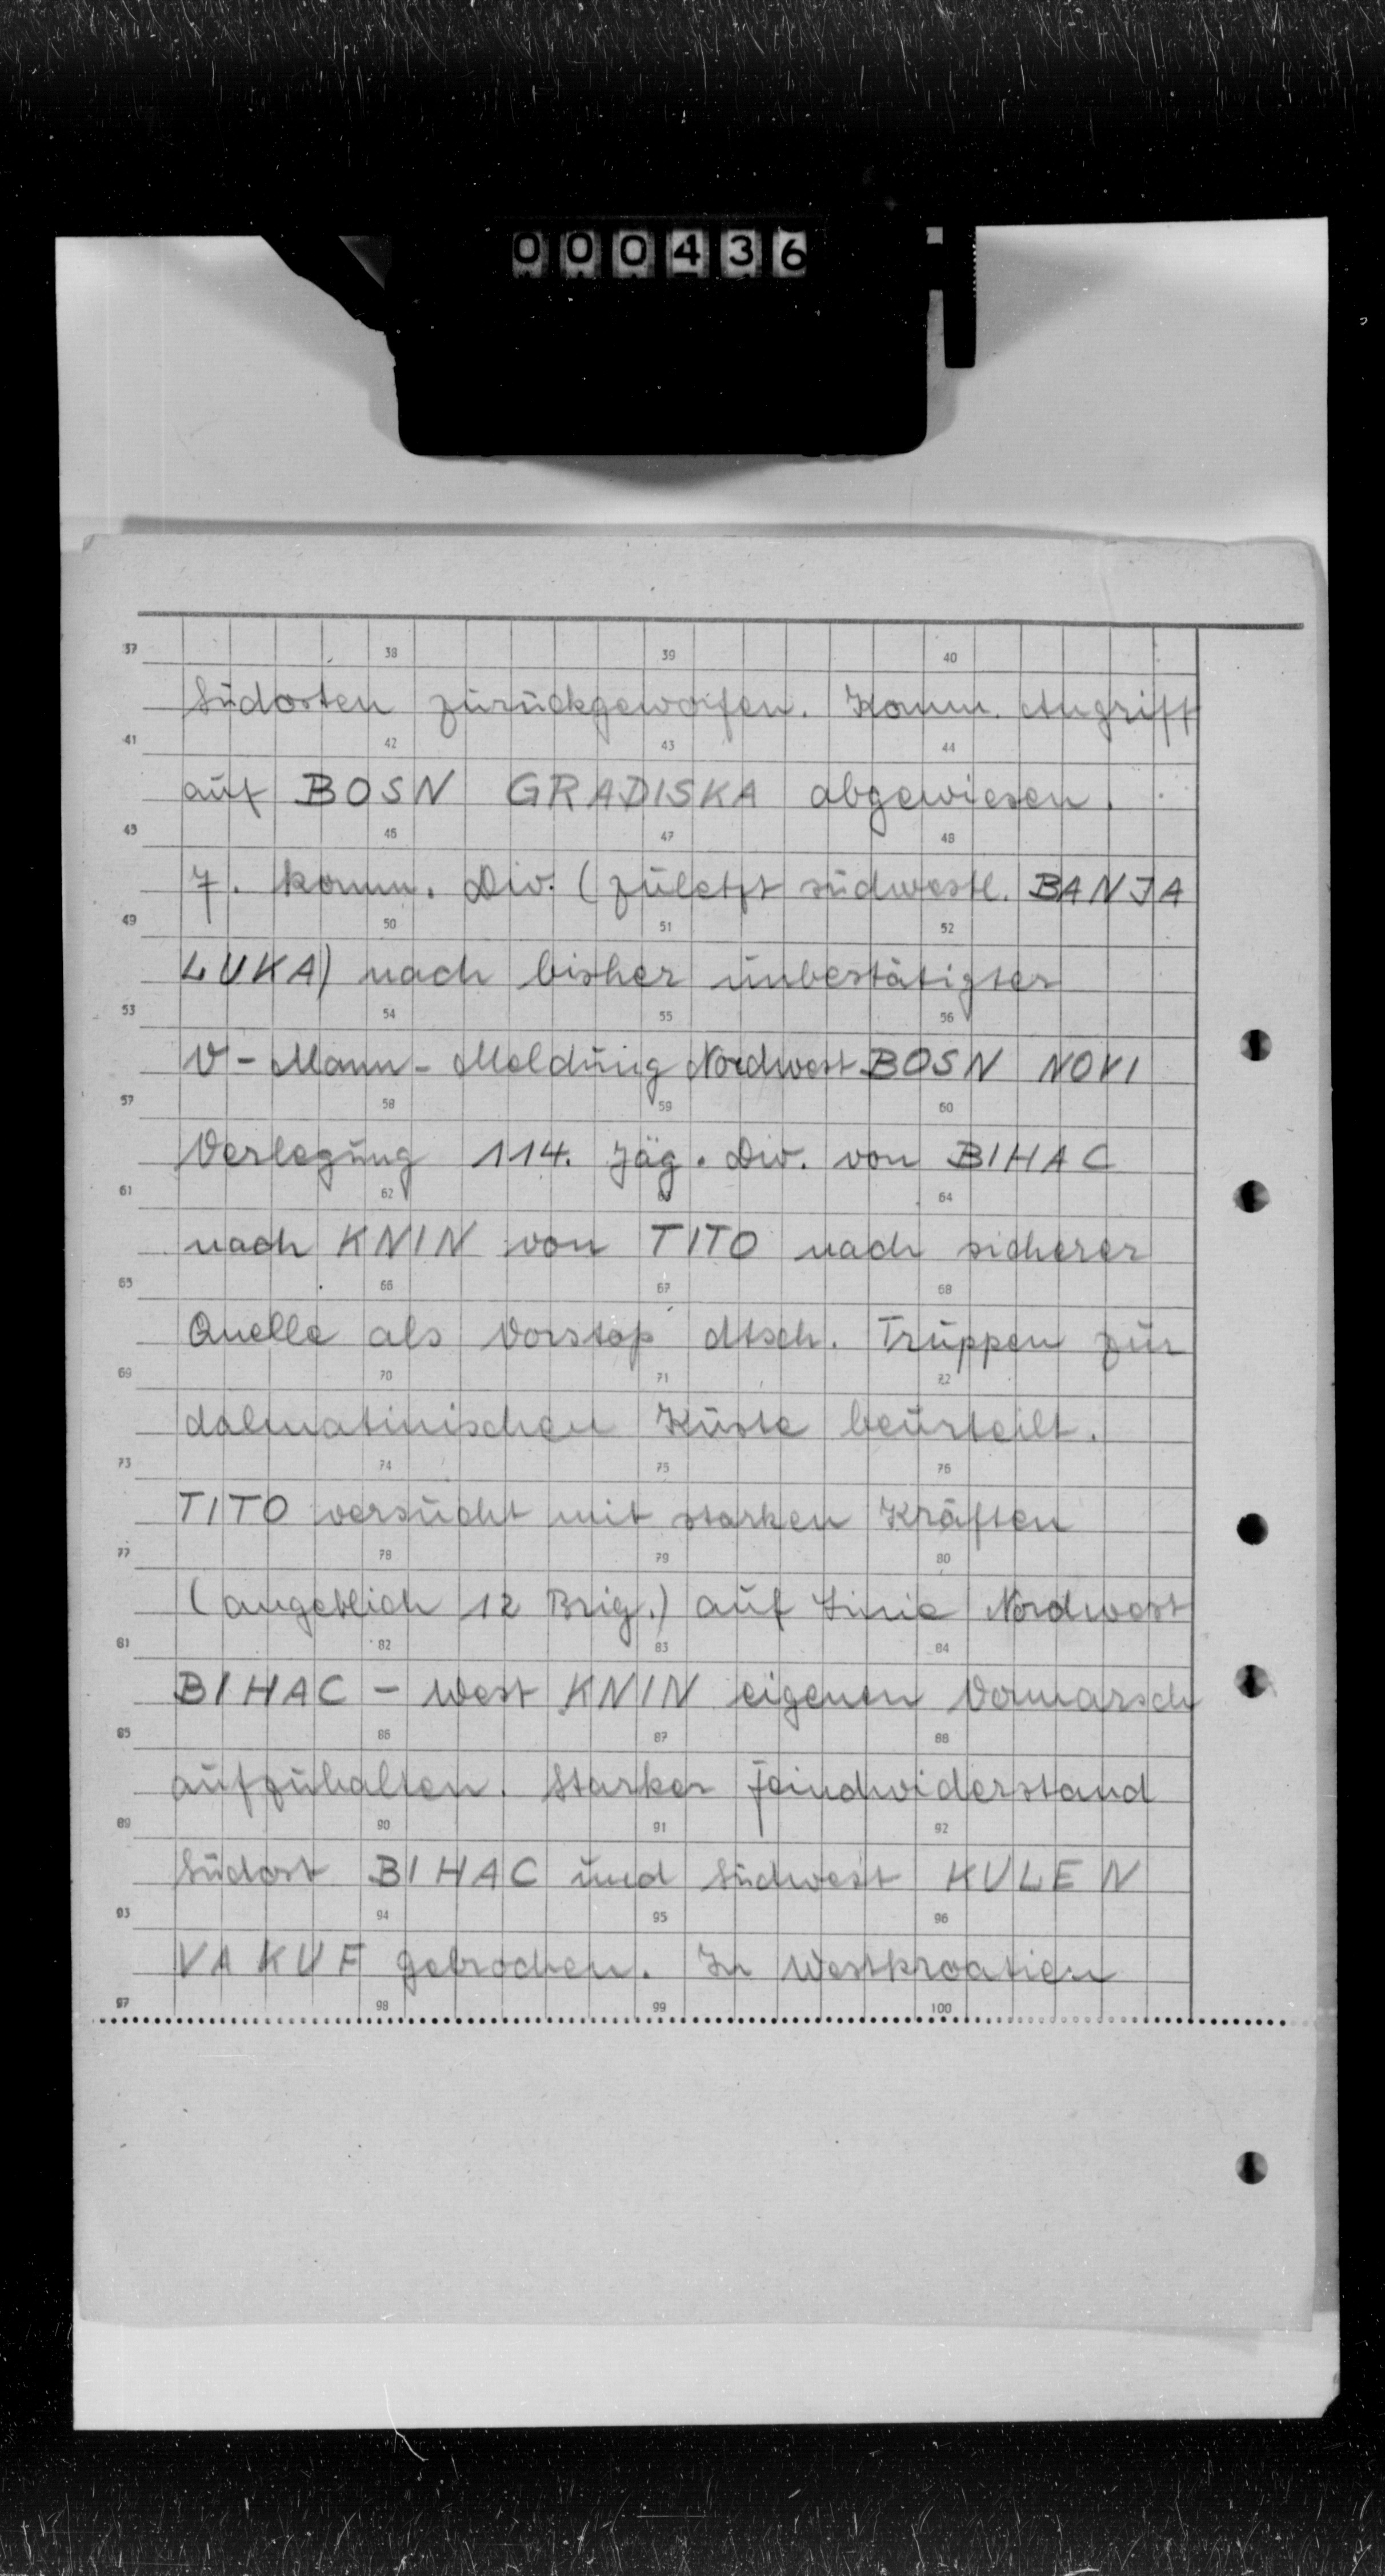 000436
37 38 39 40
Südosten zurückgeworfen. Komm. Angriff
41 42 43 44
auf BOSN GRADISKA abgewiesen.
45 46 47 48
7. komm. Div. (zuletzt südwestl. BANJA
49 50 51 52
LUKA) nach bisher unbestätigter
53 54 55 56
V-Mann-Meldung Nordwest BOSN NOVI
57 58 59 60
Verlegung 114. Jäg. Div. von BIHAC
61 62 63 64
nach KNIN von TITO nach sicherer
65 66 67 68
Quelle als Vorstoß dtsch. Truppen zur
69 70 71 72
dalmatinischen Küste beurteilt.
73 74 75 76
TITO versucht mit starken Kräften
77 78 79 80
(angeblich 12 Brig.) auf Linie Nordwest
81 82 83 84
BIHAC - West KNIN eigenen Vormarsch
85 86 87 88
aufzuhalten. Starker Feindwiderstand
89 90 91 92
Südost BIHAC und Südwest KULEN
93 94 95 96
VAKUF gebrochen. In Westkroatien
97 98 99 100